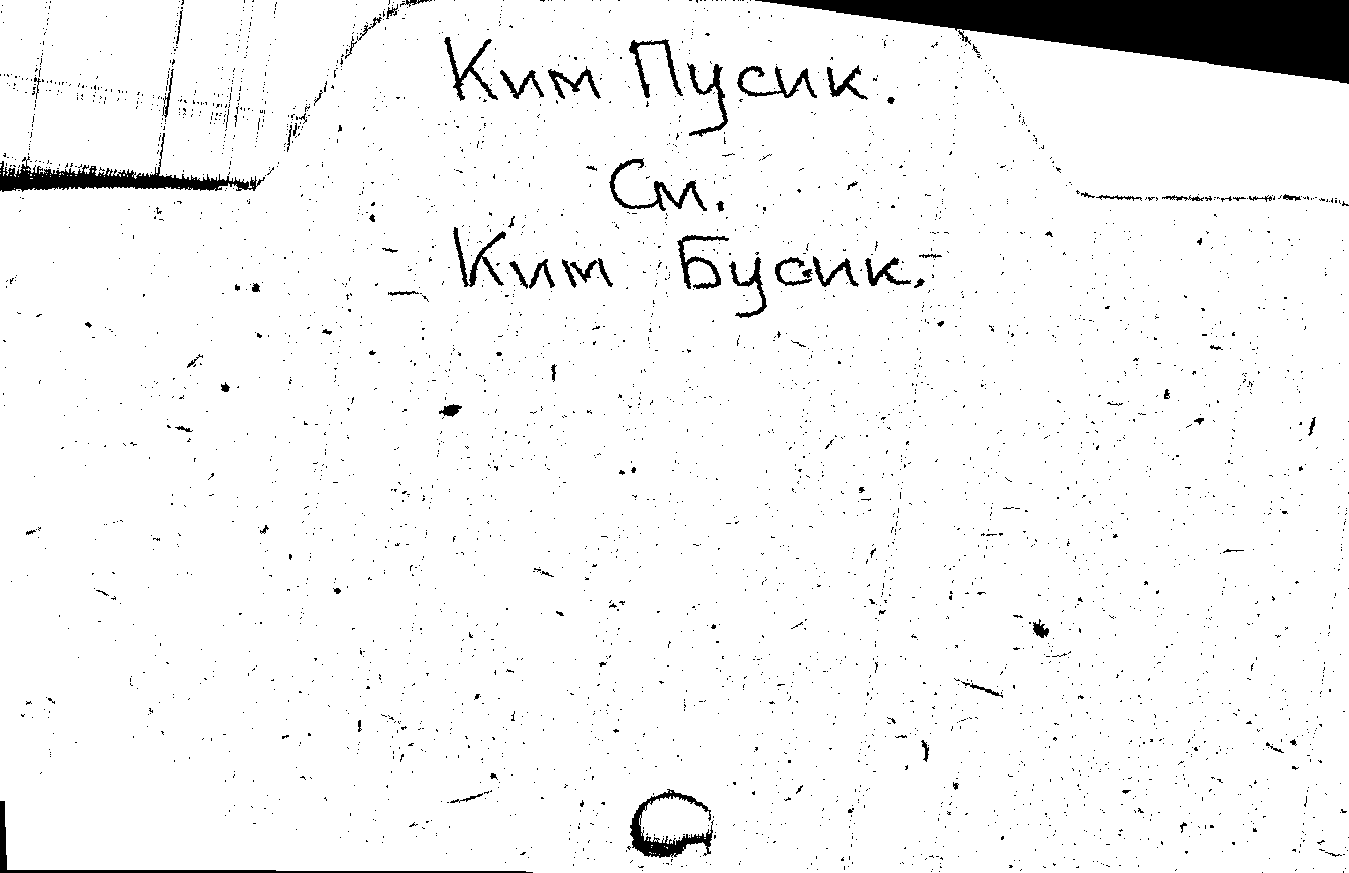 Ким Пусик.
См.
Ким Бусик.